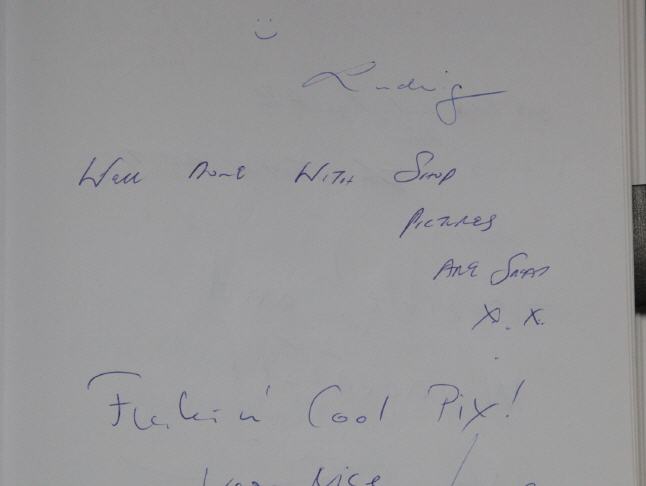 :)
Ludwig
WELL DONE WITH SHOP
PICTURES
ARE GREAT
X. X.
Fuckin' Cool Pix!
Nice